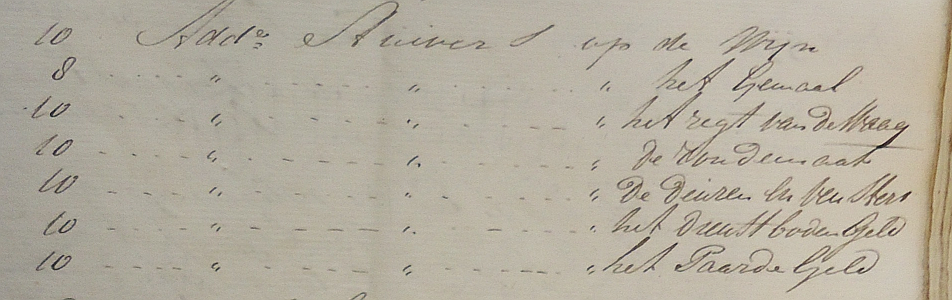 10 Adde Stuivers op de Wijn
8 " " " het Gemaal
10 " " " het regt van de Waag
10 " " " de rondemaat
10 " " " De deuren en vensters
10 " " " het dienstboden Geld
10 " " " het Paarde Geld